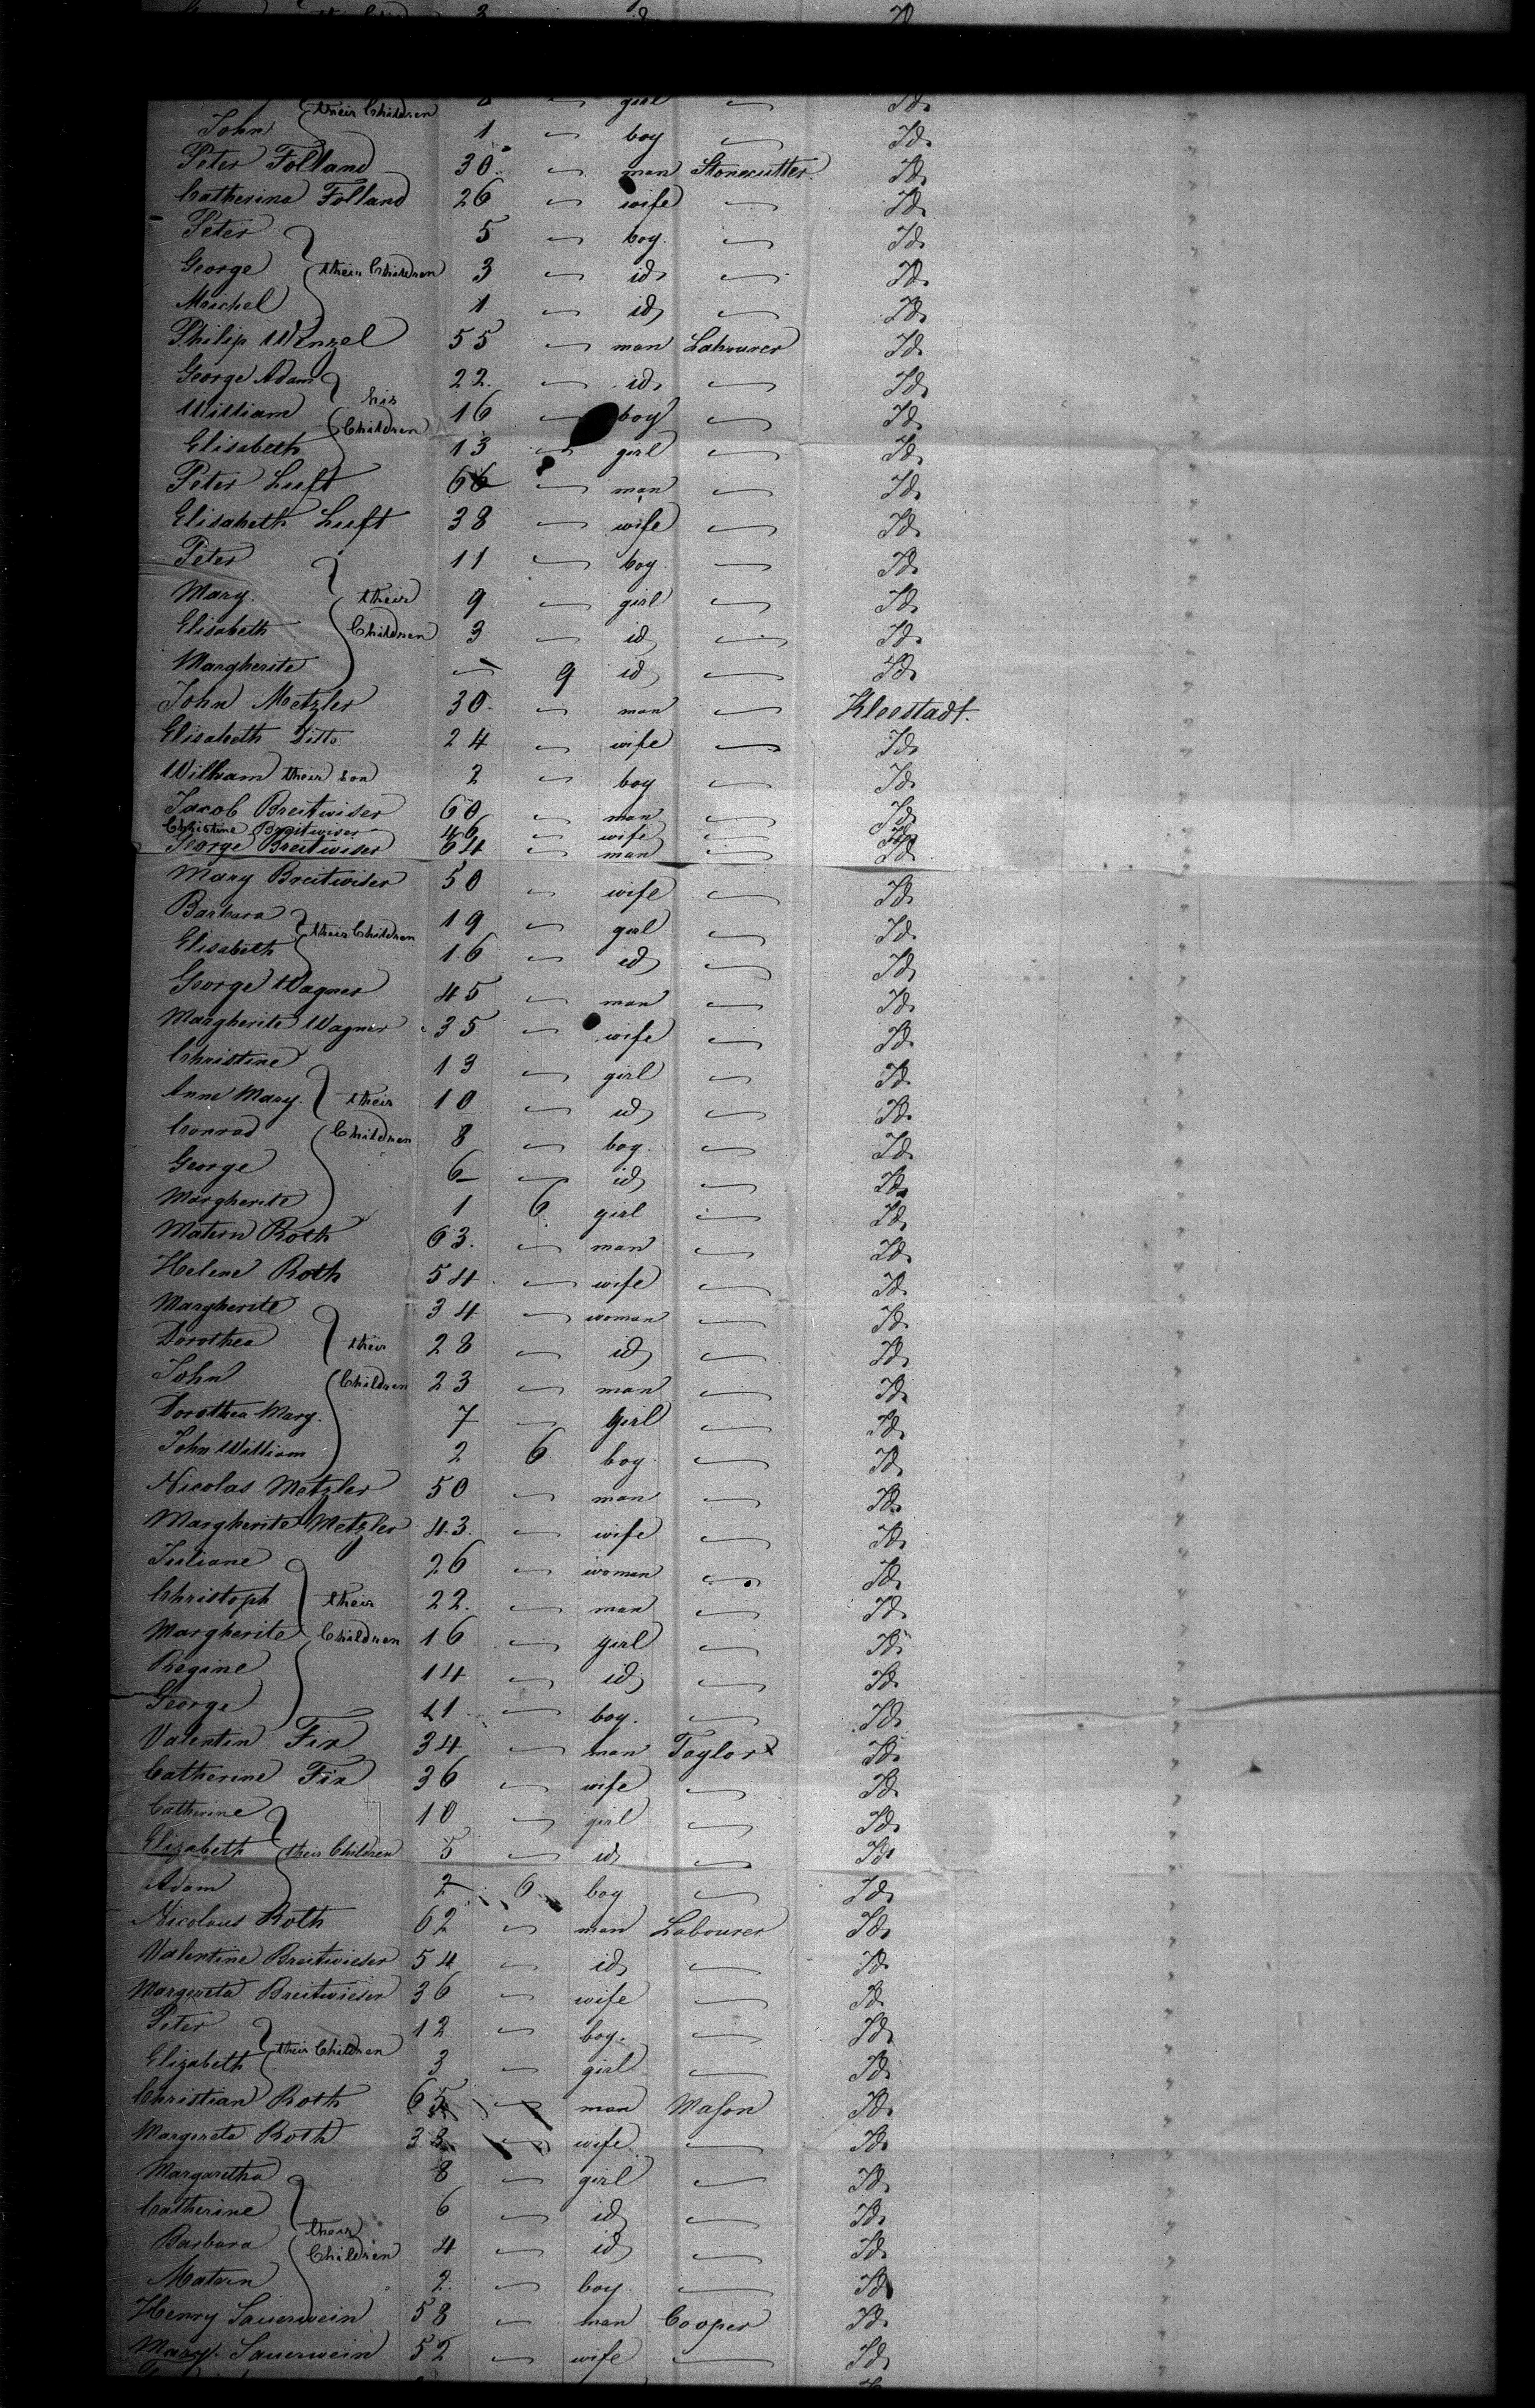 their Children girl Id.
John 1 boy Id.
Peter Folland 30 man Stonecutter Id.
Catherine Folland 26 wife Id.
Peter 5 boy. Id.
George their Children 3 id. Id.
Maichel 1 id. Id.
Philip Wenzel 55 man Labourer Id.
George Adam 22. id. Id.
William his Children 16 boy Id.
Elisabeth 13 girl Id.
Peter Luft 66 man Id.
Elisabeth Luft 38 wife Id.
Peter 11 boy. Id.
Mary. their 9 girl Id.
Elisabeth Children 3 id. Id.
Margherite 9 id. Id.
John Metzler 30. man Kleestadt.
Elisabeth Ditto 24 wife Id.
William their son 2 boy Id.
Jacob Breitwiser 60 man Id.
Christine Breitwiser 46 wife Id.
George Breitwiser 64 man Id.
Mary Breitwiser 50 wife Id.
Barbara their Children 19 girl Id.
Elisabeth 16 id. Id.
George Wagner 45 man Id.
Margherite Wagner 35 wife Id.
Christine 13 girl Id.
Anne Mary. their 10 id. Id.
Conrad Children 8 boy. Id.
George 6 id. Id.
Margherite 1 6 girl Id.
Matern Roth 63. man Id.
Helene Roth 54 wife Id.
Margherite 34 woman Id.
Dorothea their 28 id. Id.
John Children 23 man Id.
Dorothea Mary. 7 girl Id.
John William 2 6 boy. Id.
Nicolas Metzler 50 man Id.
Margherite Metzler 43. wife Id.
Juliane 26 woman Id.
Christoph their 22. man Id.
Margherite Children 16 girl Id.
Regine 14 id. Id.
George 11 boy. Id.
Valentin Fix 34 man Taylor Id.
Catherine Fix 36 wife Id.
Catherine 10 girl Id.
Elizabeth their Children 5 id. Id.
Adam 2 6 boy Id.
Nicolaus Roth 62 man Labourer Id.
Valentine Breitwieser 54 id. Id.
Margereta Breitwieser 36 wife Id.
Peter 12 boy. Id.
Elizabeth their Children 3 girl Id.
Christian Roth 65 man Mason Id.
Margereta Roth 33 wife Id.
Margaretha 8 girl Id.
Catherine 6 id. Id.
Barbara their Children 4 id. Id.
Matern 2. boy. Id.
Henry Sauerwein 58 man Cooper Id.
Mary. Sauerwein 52 wife Id.